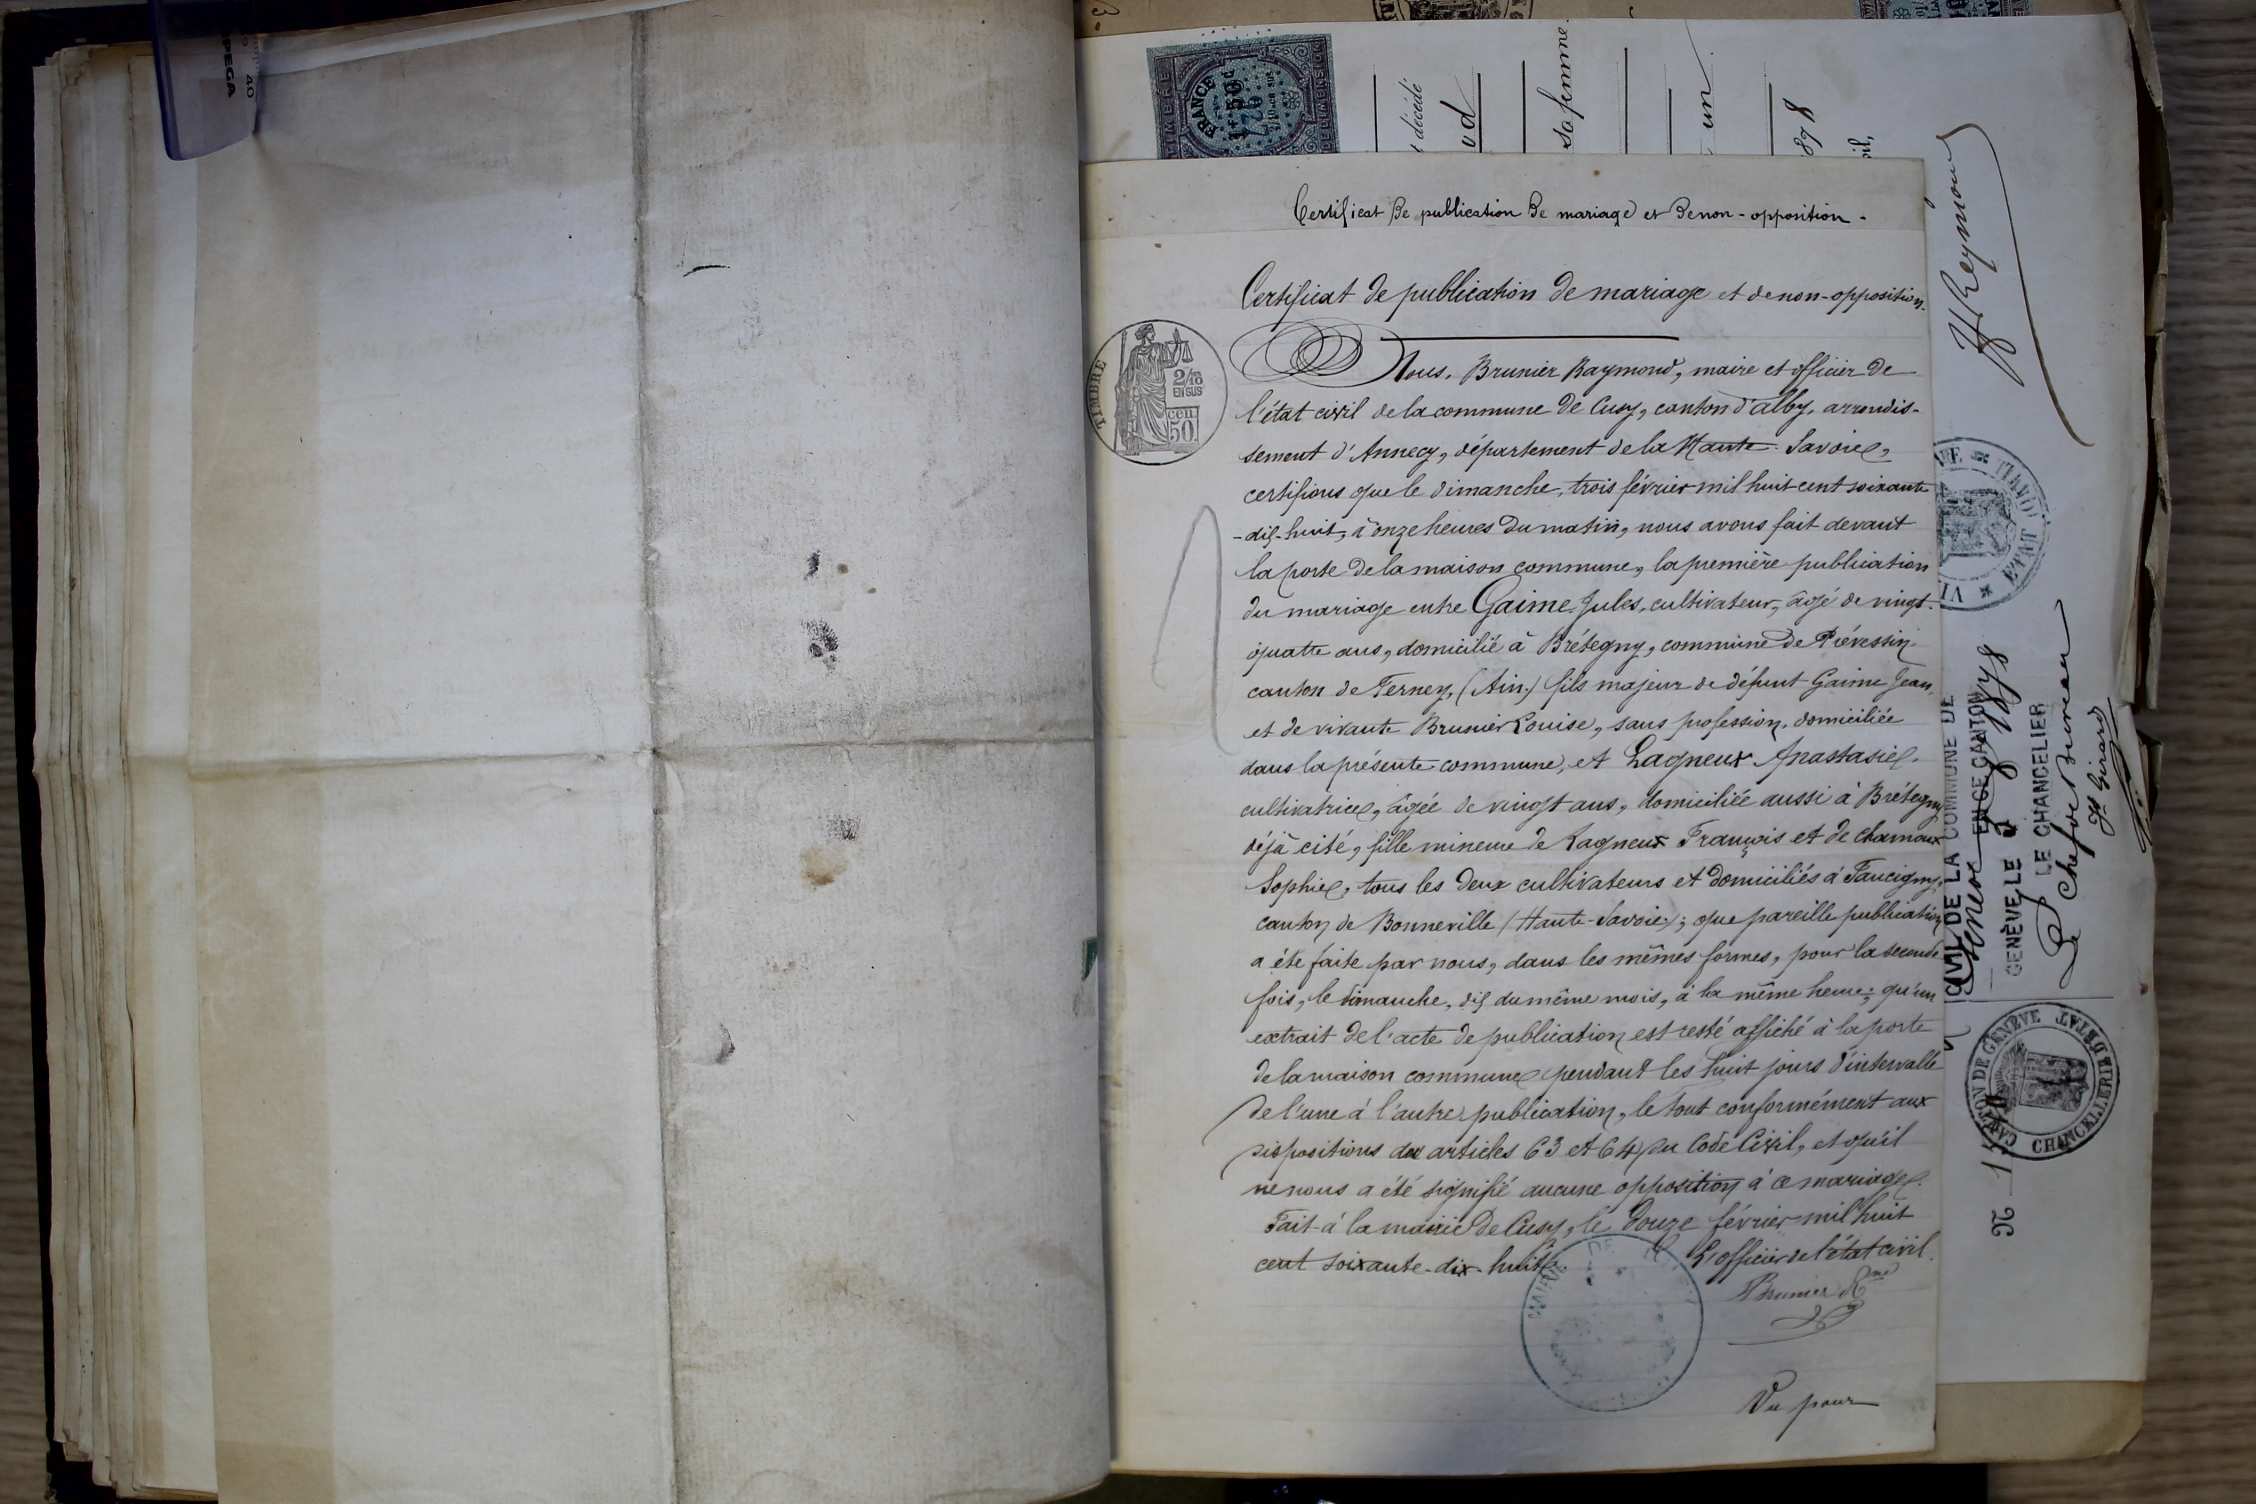 40
PEGA
TIMBRE
FRANCE
1f.50c
DIMENSION
décédé
sa femme
un
1878
Certificat de publication de mariage et de non-opposition.
Certificat de publication de mariage et de non-opposition.
TIMBRE
2/10
EN SUS
cen
50
Nous, Brunier Raymond, maire et officier de
l'état civil de la commune de Cusy, canton d'alby, arrondis-
sement d'Annecy, département de la Haute-Savoie,
certifions que le dimanche, trois février mil huit cent soixante
-dix-huit, à onze heures du matin, nous avons fait devant
la porte de la maison commune, la première publication
du mariage entre Gaime Jules, cultivateur, âgé de vingt-
quatre ans, domicilié à Brétegny, commune de Prévessin
canton de Ferney, (Ain) fils majeur de défunt Gaime Jean,
et de vivante Brunier Louise, sans profession, domiciliée
dans la présente commune, et Lagneux Anastasie,
cultivatrice, âgée de vingt ans, domiciliée aussi à Brétegny
déjà cité, fille mineure de Lagneux François et de Chamoux
Sophie, tous les deux cultivateurs et domiciliés à Faucigny,
canton de Bonneville (Haute-Savoie); que pareille publication
a été faite par nous, dans les mêmes formes, pour la seconde
fois, le dimanche, dix du même mois, à la même heure; qu'un
extrait de l'acte de publication est resté affiché à la porte
de la maison commune pendant les huit jours d'intervalle
de l'une à l'autre publication, le tout conformément aux
dispositions des articles 63 et 64 du Code Civil, et qu'il
ne nous a été signifié aucune opposition à ce mariage.
Fait à la mairie de Cusy, le douze février mil huit
cent soixante-dix-huit.
L'officier de l'état civil.
Brunier Rmd
MAIRIE DE
Vu pour
ETAT CIVIL
CIVIL DE LA COMMUNE DE
EN CE CANTON
GENÈVE, LE
LE CHANCELIER
Le Chef de bureau
Jh Girard
CANTON DE GENÈVE
CHANCELLERIE D'ETAT